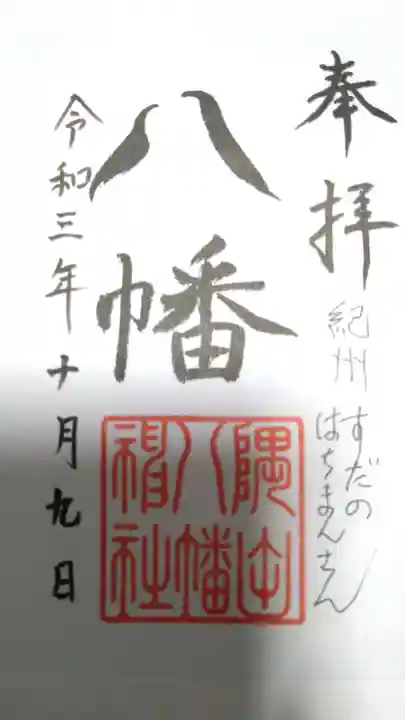 奉拝
紀州すだの
はちまんさん
八幡
隅田
八幡
神社
令和三年十月九日